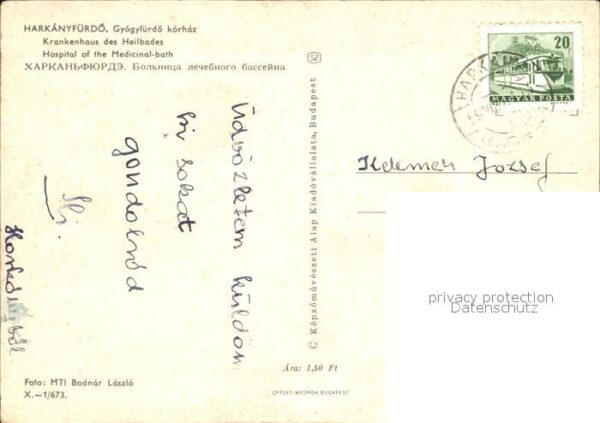 HARKÁNYFÜRDŐ. Gyógyfürdő kórház
Krankenhaus des Heilbades
Hospital of the Medicinal-bath
ХАРКАНЬФЮРДЭ. Больница лечебного бассейна
Üdvözletem küldöm
sokat
gondolnod
Foto: MTI Bodnár László
X.—1/673.
© Képzőművészeti Alap Kiadóvállalata, Budapest
Ára: 1,50 Ft
OFFSET-NYOMDA BUDAPEST
20
MAGYAR POSTA
HARKÁNY
Kelemen József
privacy protection
Datenschutz